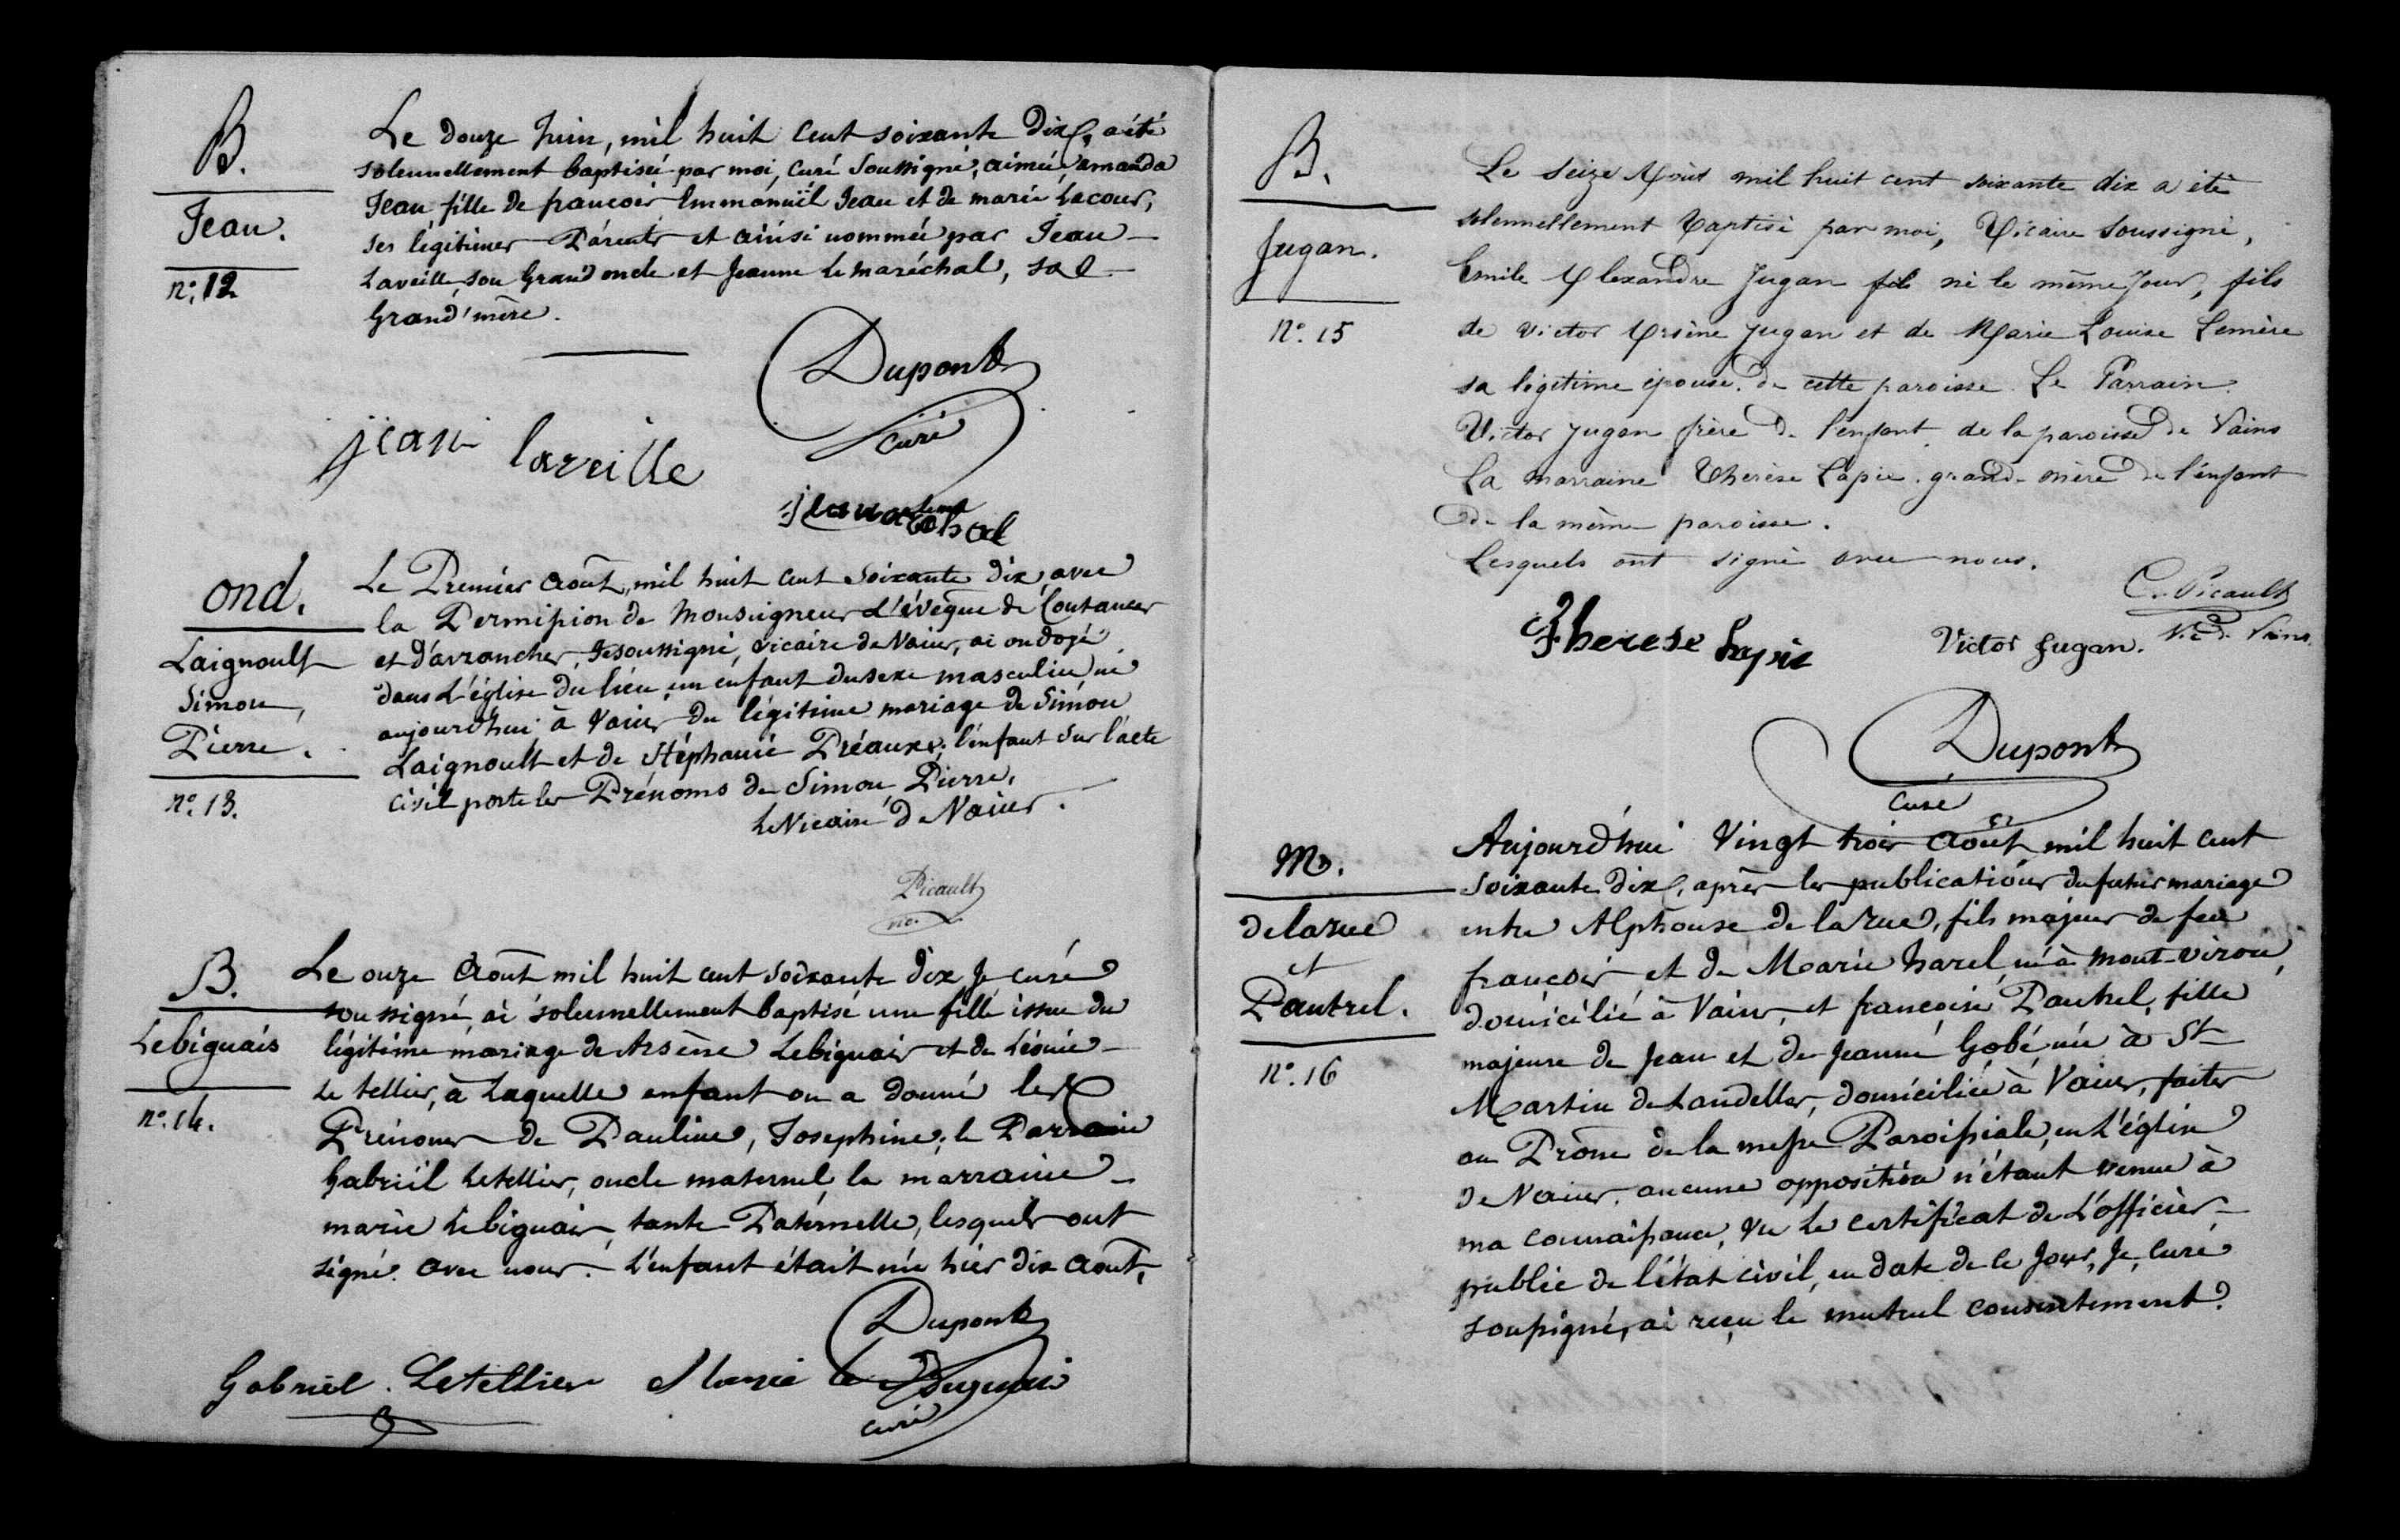 B.
Jean.
n°. 12
Le douze Juin, mil huit cent soixante dix, a été
solennellement baptisée par moi, curé soussigné, aimée, amanda
Jean, fille de françois Emmanuël Jean et de marie Lacour,
ses légitimes Parents et ainsi nommée par Jean
Laveille, son Grand oncle et Jeanne Le maréchal, sa
Grand'mère.
Dupont
curé
jean laveille
ond.
Laignoult
Simon,
Pierre.
n°. 13.
Le Premier août, mil huit cent soixante dix, avec
la Permission de Monseigneur L'évêque de Coutances
et d'avranches, Je soussigné, vicaire de Vains, ai ondoyé
dans L'église du lieu, un enfant du sexe masculin, né
aujourd'hui à Vains du légitime mariage de Simon
Laignoult et de Stéphanie Préaux; l'enfant sur l'acte
civil porte les Prénoms de Simon Pierre.
Le Vicaire de Vains.
Picault
vic.
B.
Lebiguais
n°. 14.
Le onze août mil huit cent soixante dix, Je, curé
soussigné, ai solennellement baptisé une fille issue du
légitime mariage de Arsène Lebiguais et de Léonie
Le tellier, à Laquelle enfant on a donné les
Prénoms de Pauline, Josephine; le Parrain
Gabriël Letellier, oncle maternel, la marraine
marie Lebiguais, tante Paternelle, lesquels ont
signé avec nous. L'enfant était née hier dix août.
Dupont
Gabriel. Letellier Marie
curé
B.
Jugan.
N°. 15
Le seize Août mil huit cent soixante dix a été
solennellement Baptisé par moi, Vicaire soussigné,
Emile Alexandre Jugan fils né le même jour, fils
de victor Arsène Jugan et de Marie Louise Lemère
sa légitime épouse. de cette paroisse. Le Parrain
Victor Jugan frère de l'enfant de la paroisse de Vains
La marraine Thérèse Lapie. grand-mère de l'enfant
de la même paroisse.
Lesquels ont signé avec nous.
C. Picault
Vic. de Vains.
Therese Lapie
Victor Jugan.
Dupont
curé
M.
delarue
et
Pautrel.
n°. 16
Aujourd'hui Vingt trois août mil huit cent
soixante dix, après les publications du futur mariage
entre Alphonse de la rue, fils majeur de feu
françois et de Marie harel, né à Mont-viron,
domicilié à Vains, et françoise Pautrel, fille
majeure de Jean et de Jeanne Gobé née à St
Martin de Landelles, domiciliée à Vains, faites
au Prône de la messe Paroissiale, en L'église
de Vains. aucune opposition n'étant venue à
ma connaissance, vu le certificat de L'officier
public de l'état civil, en date de ce Jour, Je, curé
soussigné, ai reçu le mutuel consentement